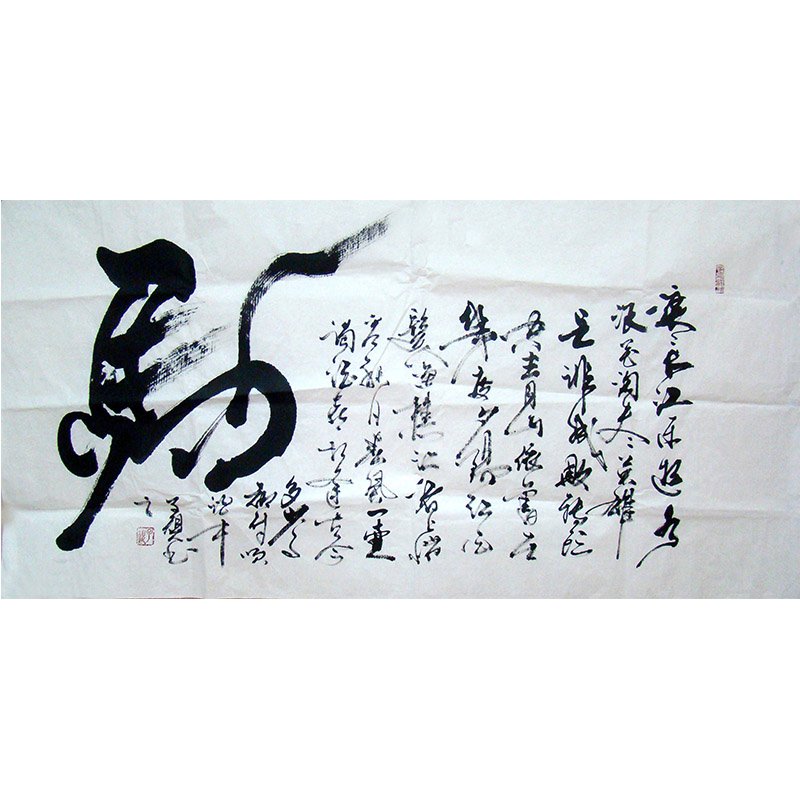 滚々长江东逝水
浪花淘尽英雄
是非成败转头
空青山依旧在
几度夕阳红白
髮渔樵江渚上惯
看秋月春风一壶
浊酒喜相逢古今
多少事
都付笑
谈中